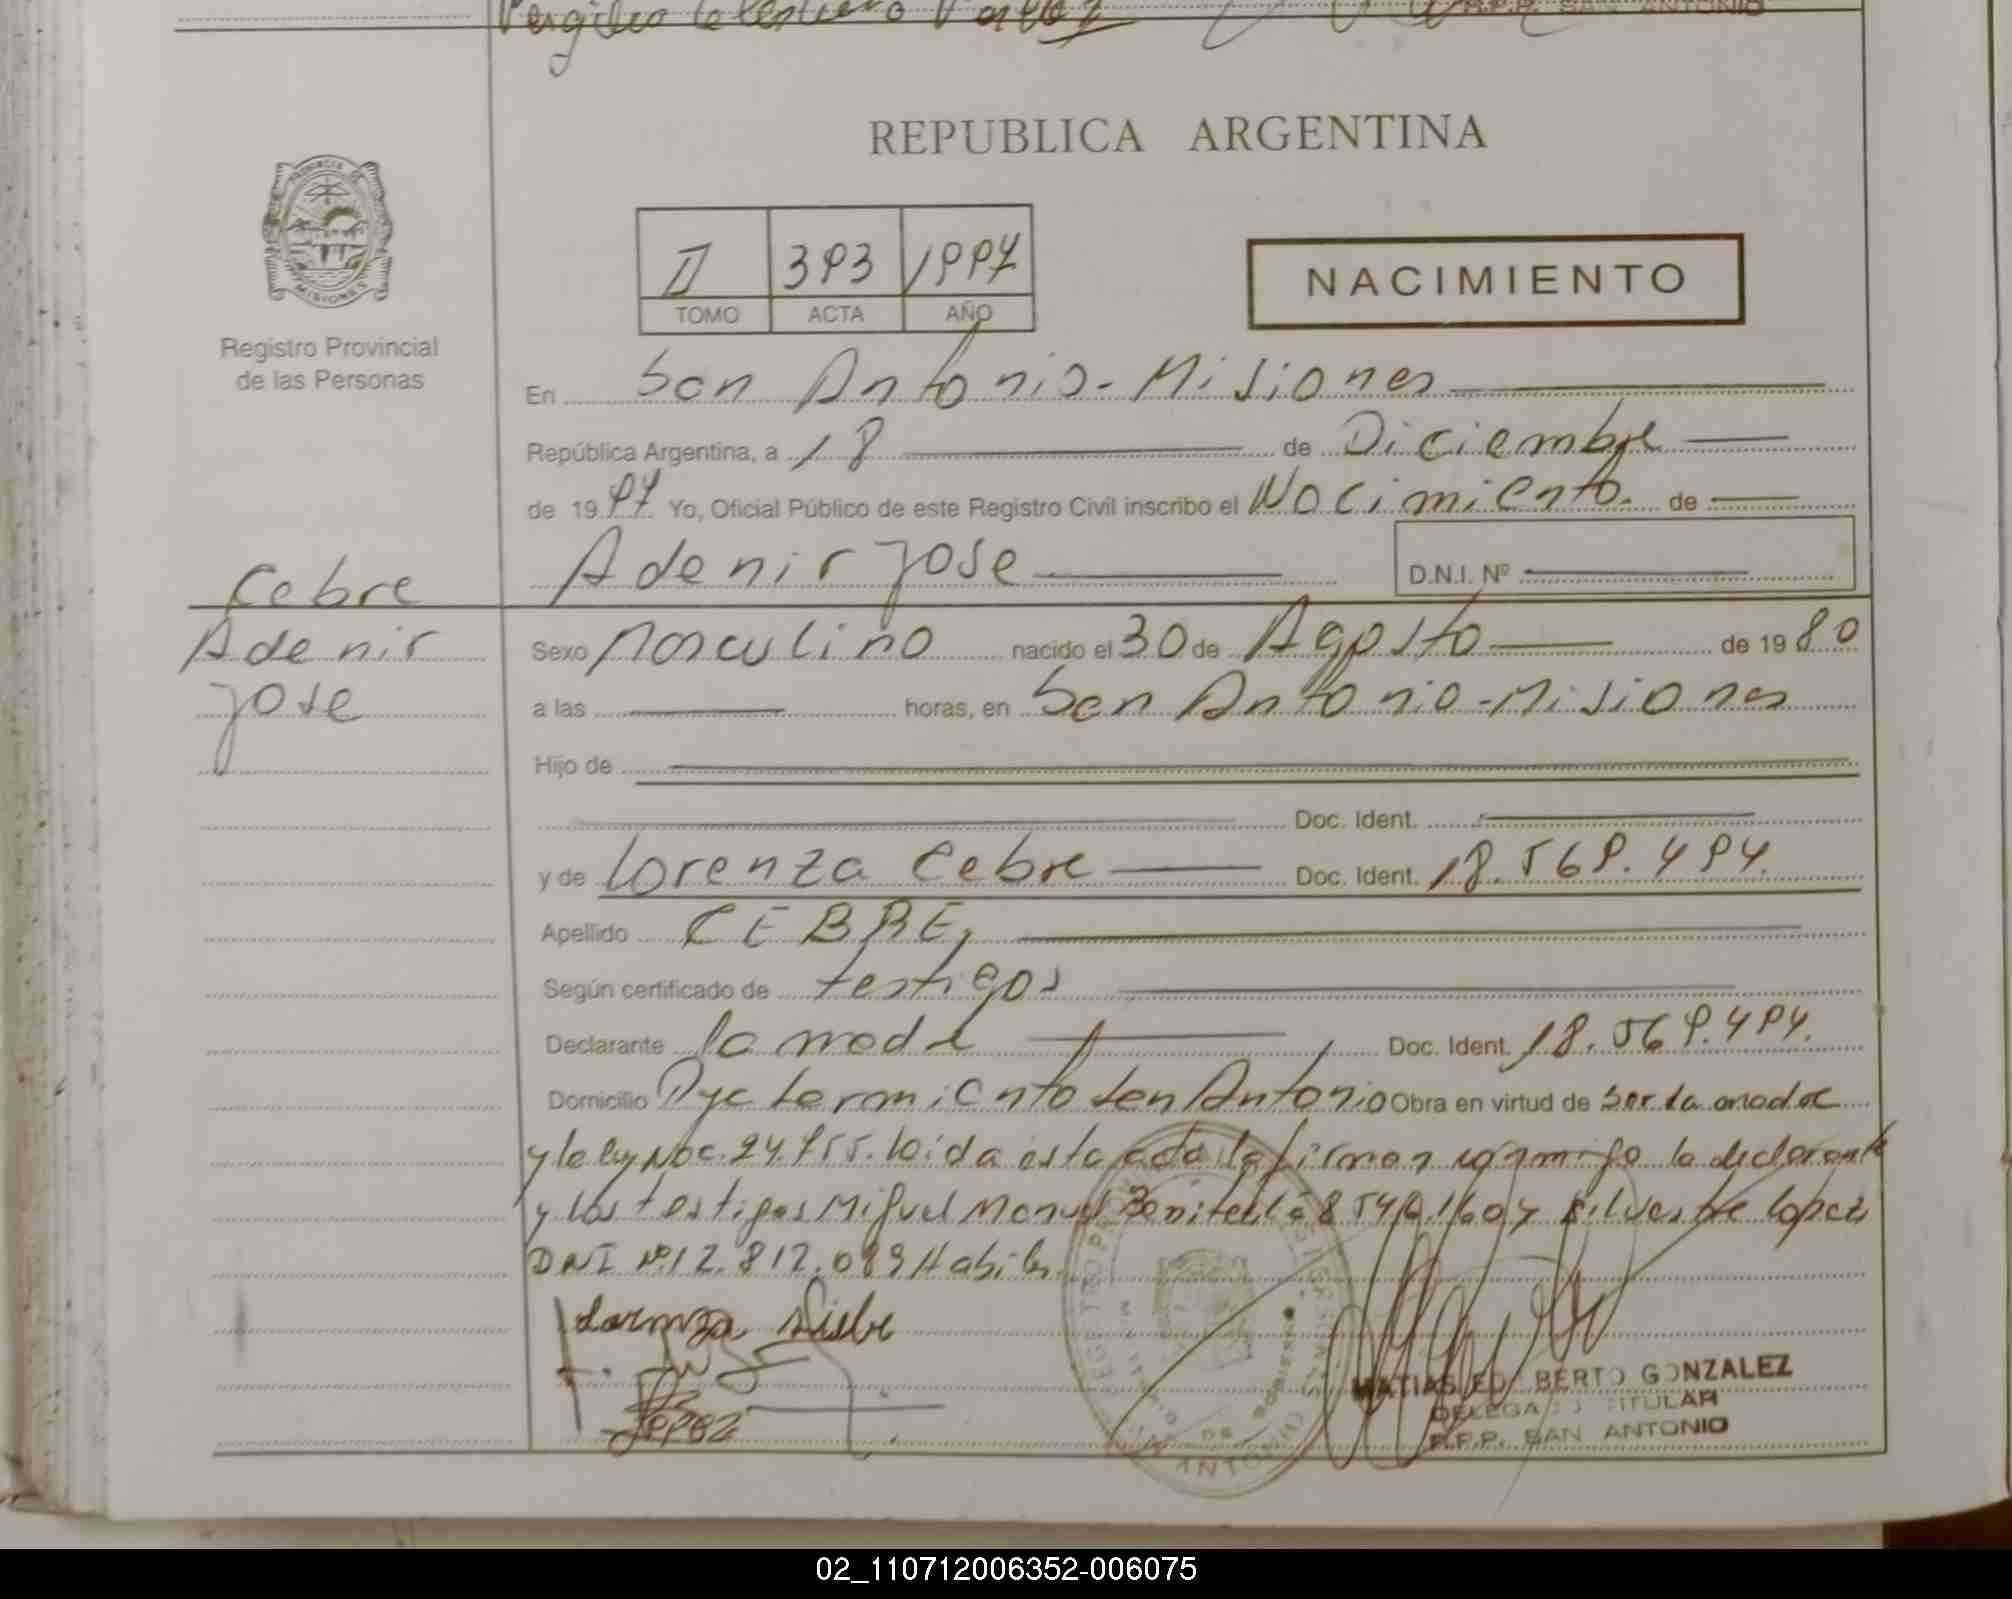 REPUBLICA ARGENTINA
PROVINCIA DE
MISIONES
Registro Provincial
de las Personas
II 393 1997
TOMO ACTA AÑO
NACIMIENTO
En San Antonio - Misiones
República Argentina, a 18 de Diciembre
de 1997 Yo, Oficial Público de este Registro Civil inscribo el Nacimiento. de
Adenir Jose D.N.I. Nº
Cebre
Adenir
Jose
Sexo Masculino nacido el 30 de Agosto de 1980
a las horas, en San Antonio - Misiones
Hijo de
Doc. Ident.
y de Lorenza Cebre Doc. Ident. 18.569.494.
Apellido CEBRE,
Según certificado de testigos
Declarante la madre Doc. Ident. 18.569.494.
Domicilio San Antonio Obra en virtud de ser la madre
y la ley Nac. 24.955. leida esta acta la firman conmigo la declarante
y los testigos Miguel Manuel Benitez 8.540.160 y Silvestre Lopez
DNI Nº 12.812.089 Habiles
Lorenza
Lopez
MATIAS EDILBERTO GONZALEZ
DELEGADO TITULAR
R.P.P. SAN ANTONIO
02_110712006352-006075